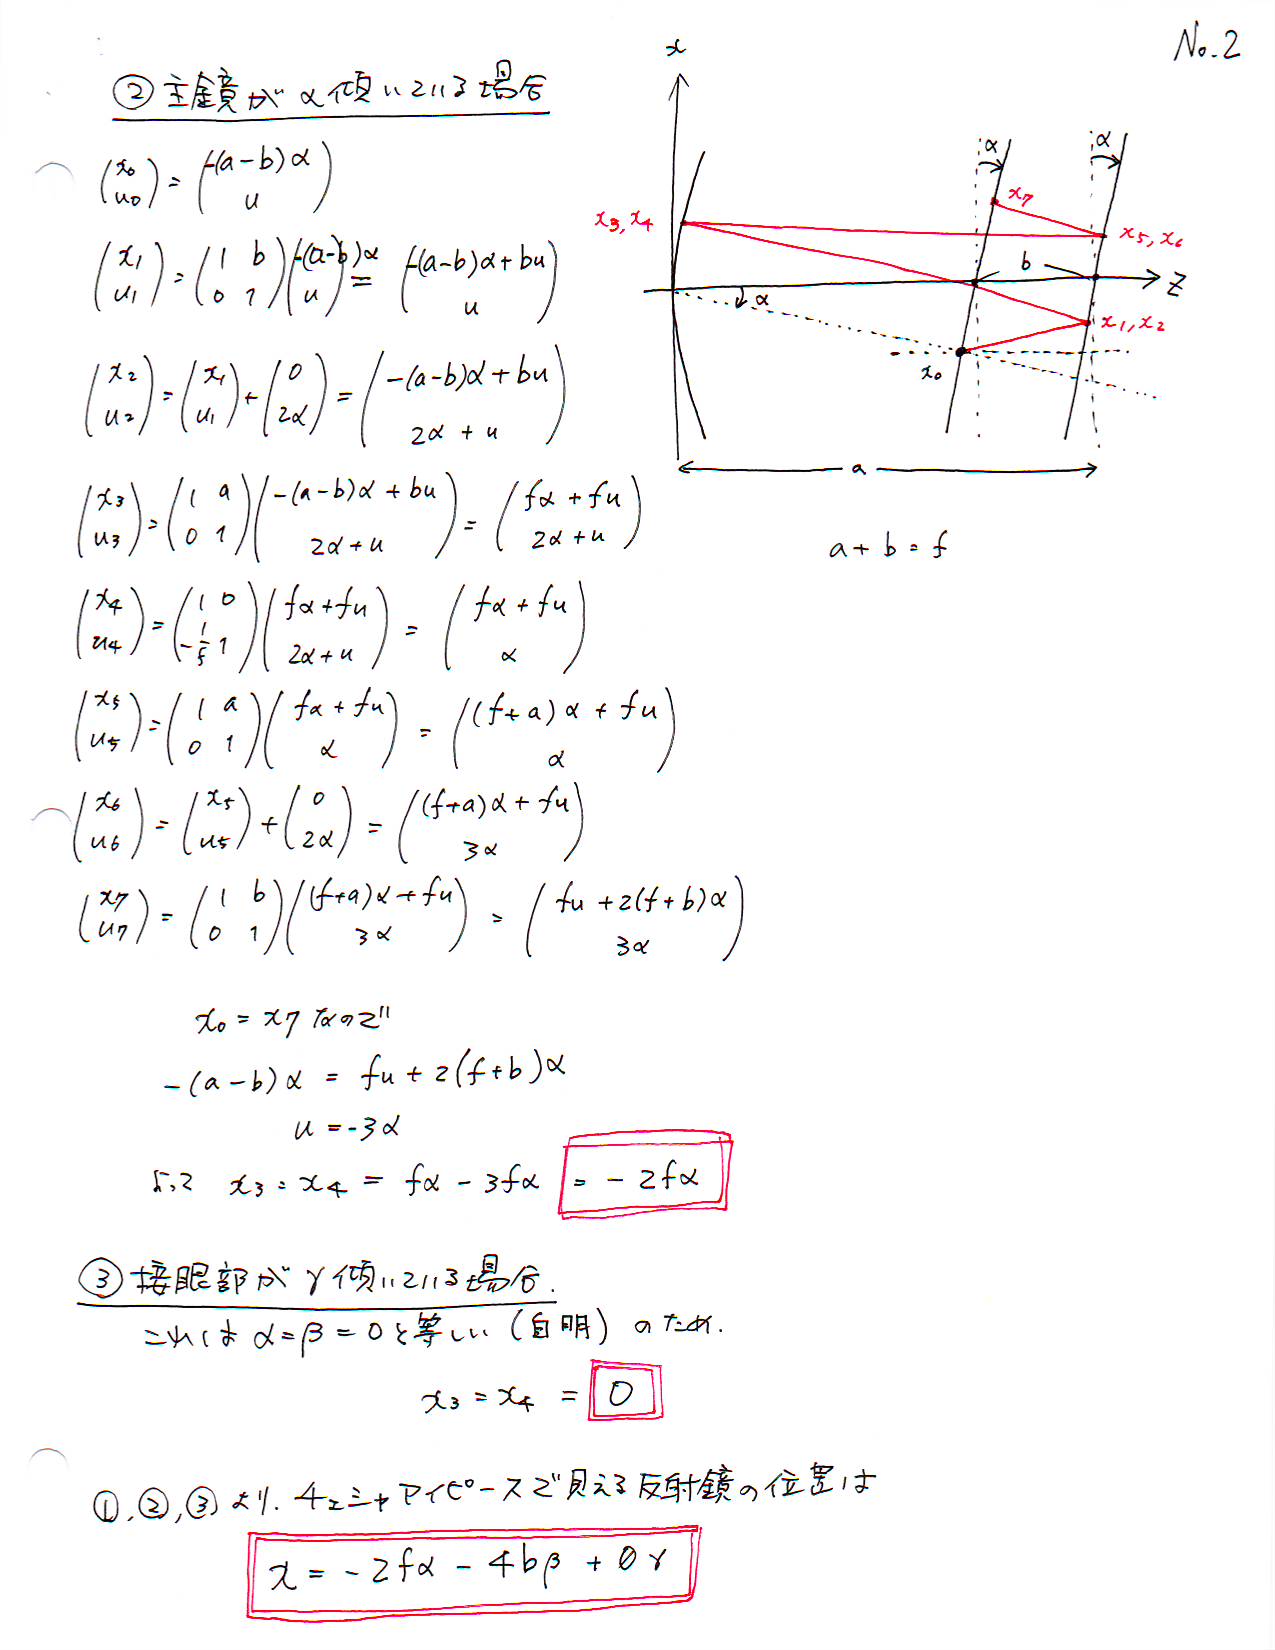 No.2
② 主鏡が α傾いている場合
(x0 u0) = (-(a-b)α u)
(x1 u1) = (1 b 0 1)(-(a-b)α u) = (-(a-b)α+bu u)
(x2 u2) = (x1 u1) + (0 2α) = (-(a-b)α+bu 2α+u)
(x3 u3) = (1 a 0 1)(-(a-b)α+bu 2α+u) = (fα+fu 2α+u)
(x4 u4) = (1 0 -1/f 1)(fα+fu 2α+u) = (fα+fu α)
(x5 u5) = (1 a 0 1)(fα+fu α) = ((f+a)α+fu α)
(x6 u6) = (x5 u5) + (0 2α) = ((f+a)α+fu 3α)
(x7 u7) = (1 b 0 1)((f+a)α+fu 3α) = (fu+2(f+b)α 3α)
x
α
α
x7
x3, x4
x5, x6
b
z
α
x1, x2
x0
a
a+b=f
x0 = x7 なので
-(a-b)α = fu+2(f+b)α
u = -3α
よって x3 = x4 = fα - 3fα = -2fα
③ 接眼部が γ傾いている場合.
これは α=β=0と等しい (自明) のため.
x3 = x4 = 0
①,②,③ より. チェシャアイピースで見える反射鏡の位置は
x = -2fα - 4bβ + 0γ